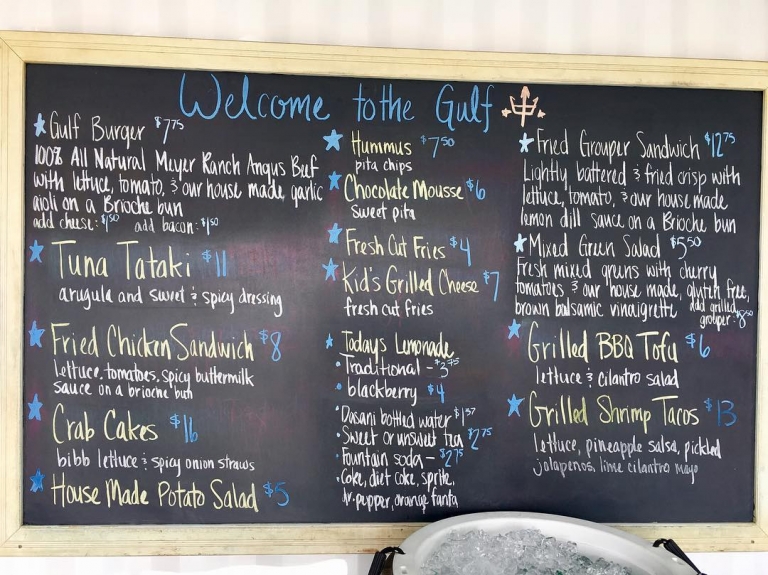 Welcome to the Gulf
Gulf Burger $7.75
100% All Natural Meyer Ranch Angus Beef
with lettuce, tomato, & our house made, garlic
aioli on a Brioche bun
add cheese: $1.50 add bacon: $1.50
Tuna Tataki $11
arugula and sweet & spicy dressing
Fried Chicken Sandwich $8
lettuce, tomatoes, spicy buttermilk
sauce on a brioche bun
Crab Cakes $16
bibb lettuce & spicy onion straws
House Made Potato Salad $5
Hummus $7.50
pita chips
Chocolate Mousse $6
Sweet pita
Fresh Cut Fries $4
Kid's Grilled Cheese $7
fresh cut fries
Todays Lemonade
Traditional - $3.75
blackberry $4
Dasani bottled water $1.57
Sweet or unsweet tea $2.75
Fountain soda - $2.75
Coke, diet coke, sprite,
dr. pepper, orange fanta
Fried Grouper Sandwich $12.75
Lightly battered & fried crisp with
lettuce, tomato, & our house made
lemon dill sauce on a Brioche bun
Mixed Green Salad $5.50
Fresh mixed greens with cherry
tomatoes & our house made, gluten free,
brown balsamic vinaigrette add grilled
grouper - $8.50
Grilled BBQ Tofu $6
lettuce & cilantro salad
Grilled Shrimp Tacos $13
lettuce, pineapple salsa, pickled
jalapenos, lime cilantro mayo